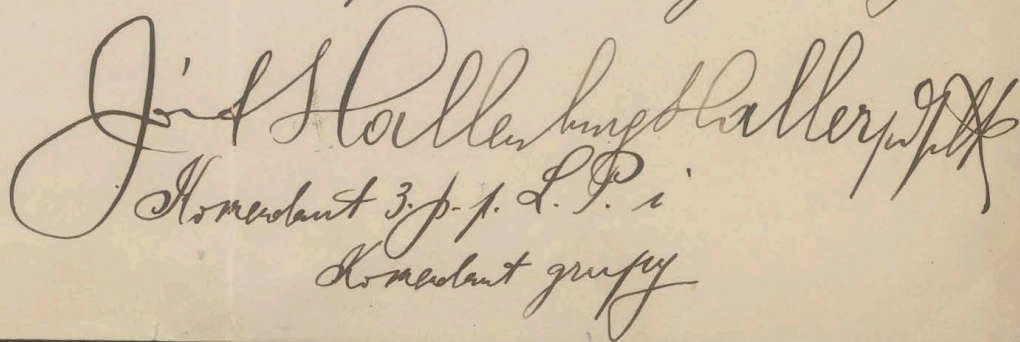 Józef Hallenburg Haller ppłk
Komendant 3. p. p. L. P. i
Komendant grupy